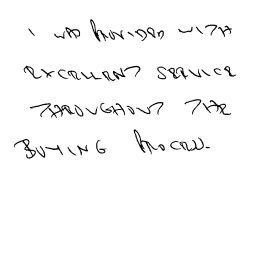 I WAS PROVIDED WITH
EXCELLENT SERVICE
THROUGHOUT THE
BUYING PROCESS.